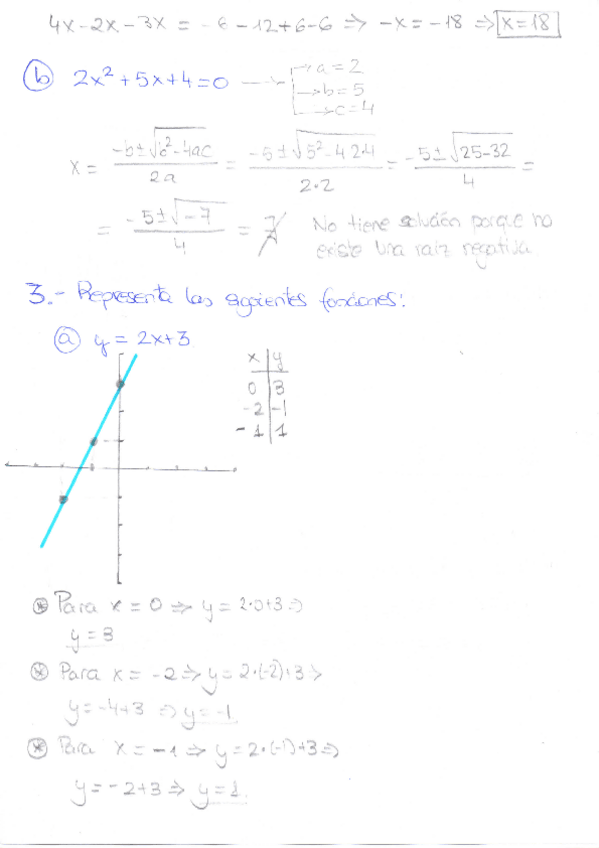 4x-2x-3x = -6-12+6-6 ⇒ -x = -18 ⇒ x=18
b) 2x²+5x+4=0 → a=2
→ b=5
→ c=4
x = (-b±√(b²-4ac))/(2a) = (-5±√(5²-4·2·4))/(2·2) = (-5±√(25-32))/4 =
= (-5±√(-7))/4 = ∄ No tiene solución porque no
existe una raíz negativa.
3.- Representa las siguientes funciones:
a) y = 2x+3
x | y
0 | 3
-2 | -1
-1 | 1
* Para x = 0 ⇒ y = 2·0+3 ⇒
y = 3
* Para x = -2 ⇒ y = 2·(-2)+3 ⇒
y = -4+3 ⇒ y = -1
* Para x = -1 ⇒ y = 2·(-1)+3 ⇒
y = -2+3 ⇒ y = 1.